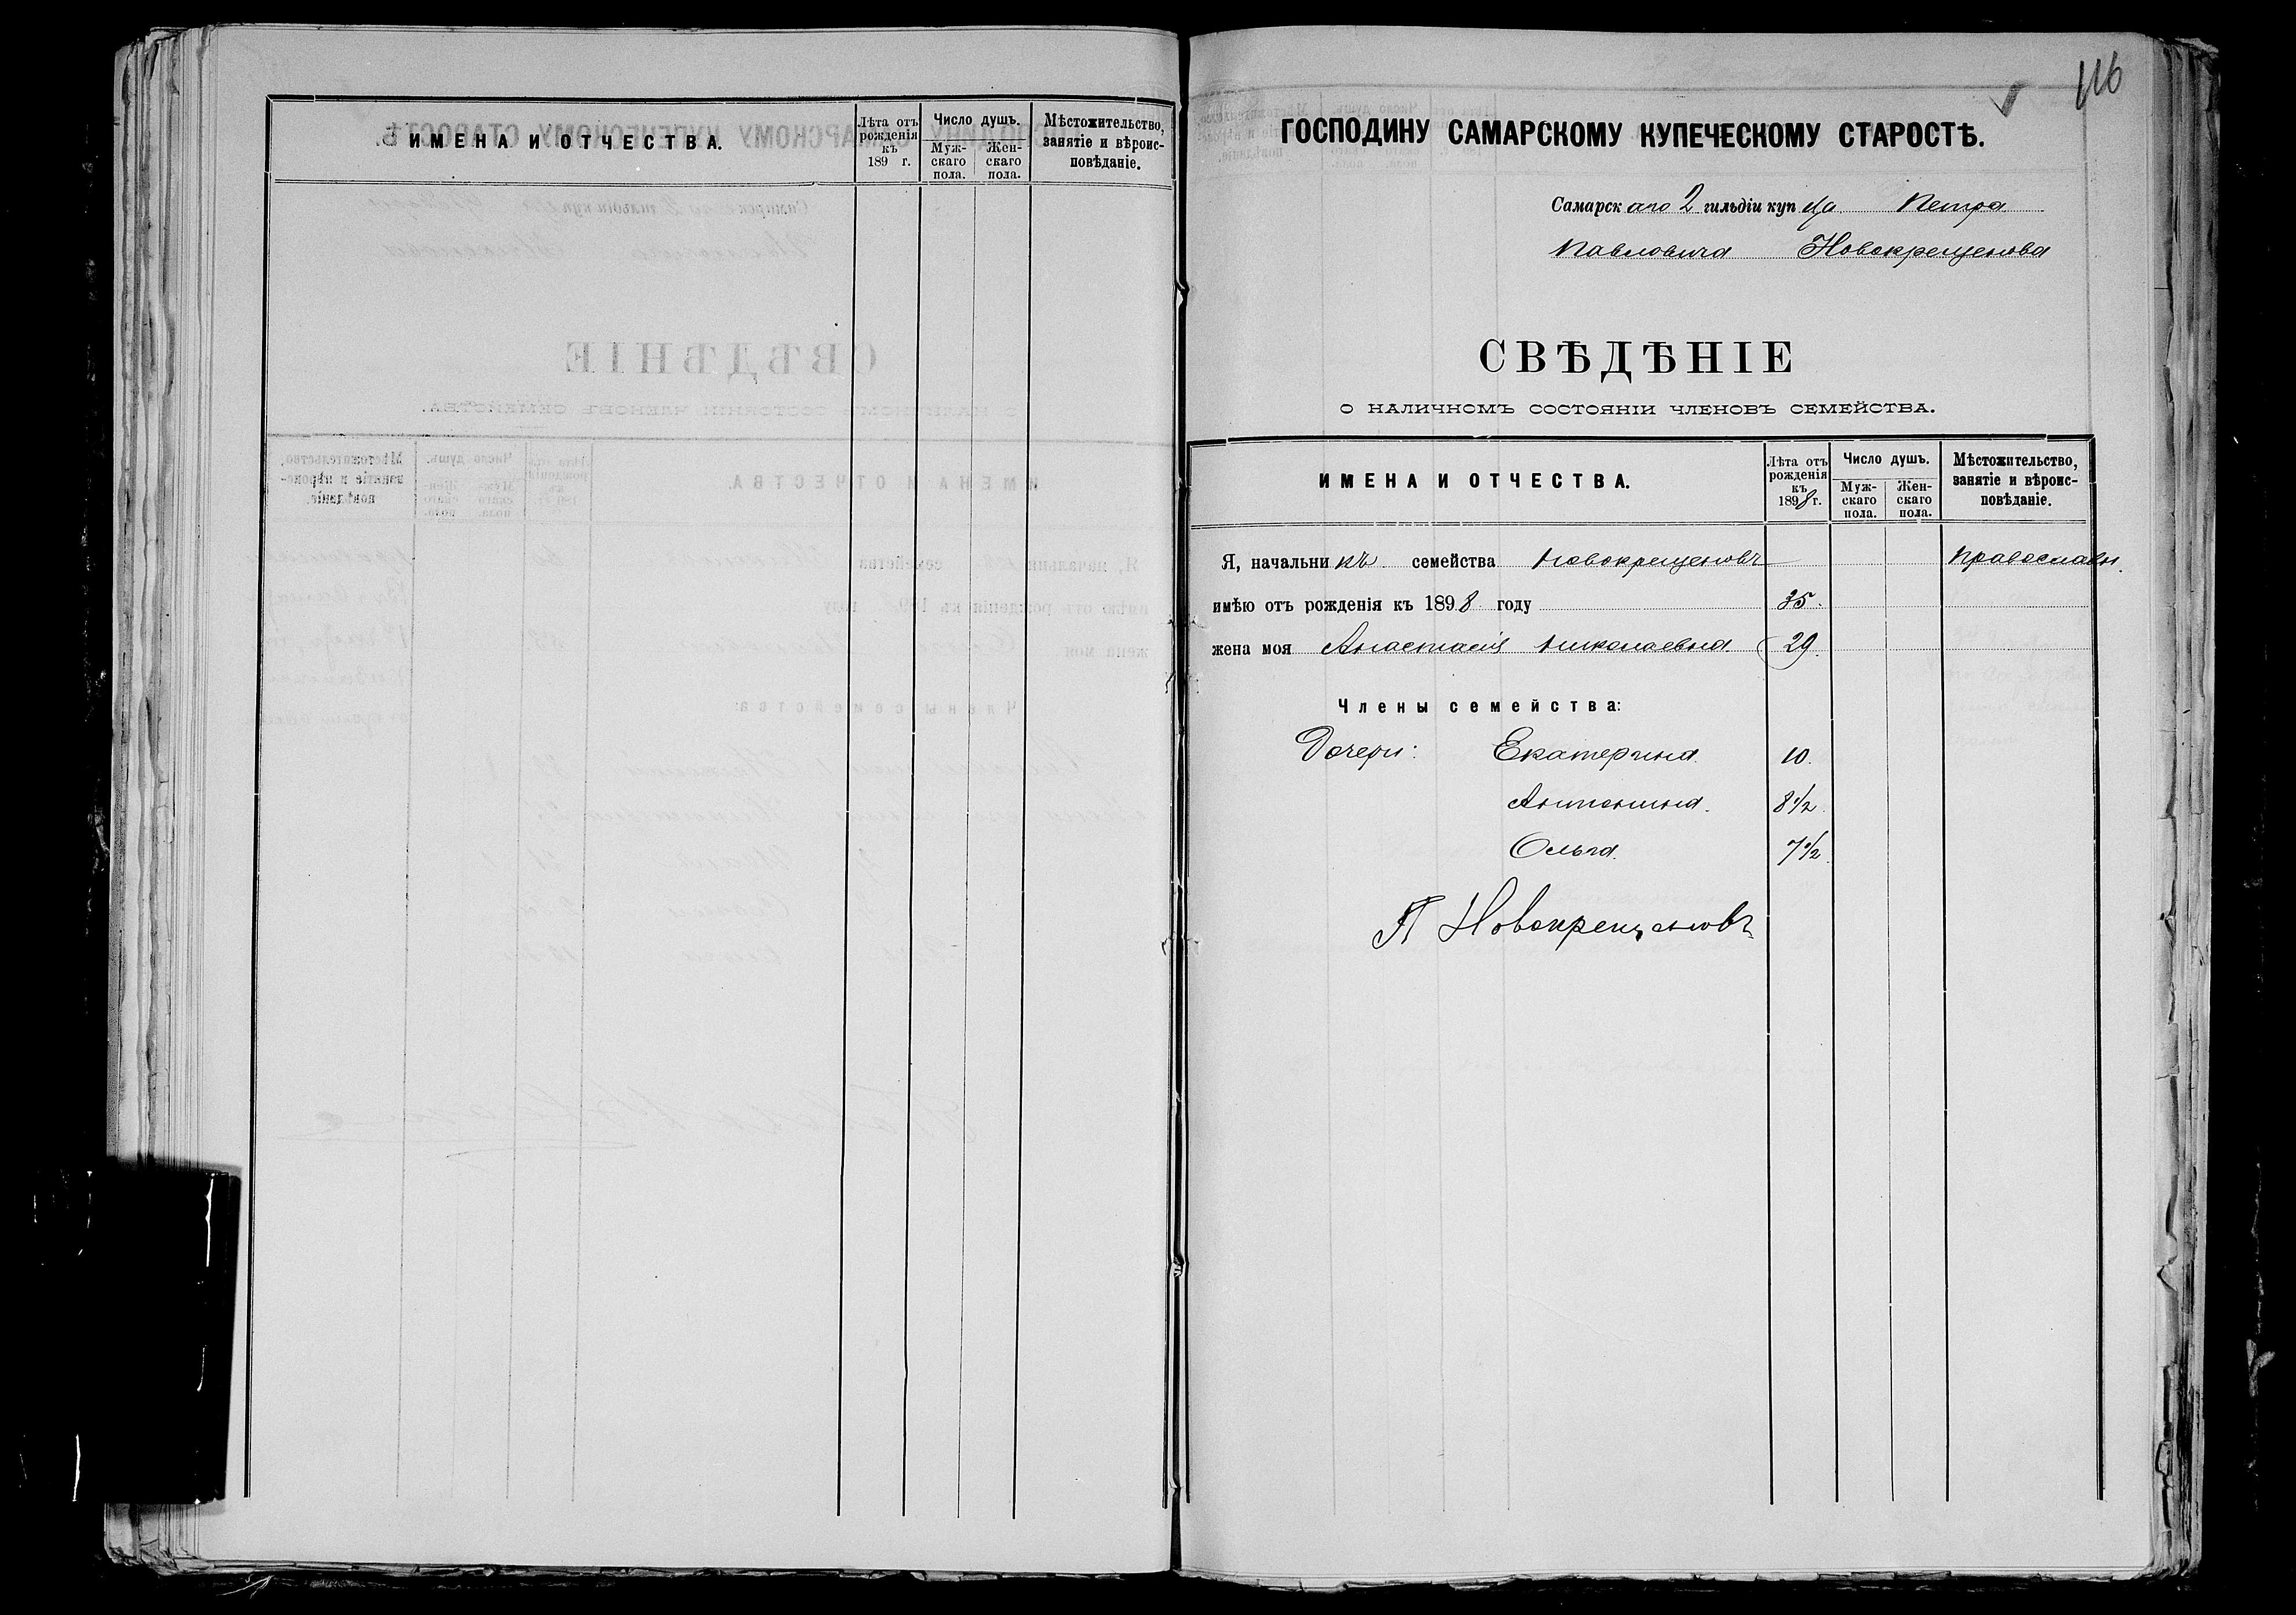 ИМЕНА И ОТЧЕСТВА.
Лѣта отъ рожденія къ 189 г.
Число душъ.
Муж-скаго пола.
Жен-скаго пола.
Мѣстожительство, занятіе и вѣроис-повѣданіе.
116
ГОСПОДИНУ САМАРСКОМУ КУПЕЧЕСКОМУ СТАРОСТѢ.
Самарскаго 2 гильдіи купца Петра
Павловича Новокрещенова
СВѢДѢНІЕ
О НАЛИЧНОМЪ СОСТОЯНІИ ЧЛЕНОВЪ СЕМЕЙСТВА.
ИМЕНА И ОТЧЕСТВА.
Лѣта отъ рожденія къ 1898 г.
Число душъ.
Муж-скаго пола.
Жен-скаго пола.
Мѣстожительство, занятіе и вѣроис-повѣданіе.
Я, начальникъ семейства Новокрещеновъ Православн.
имѣю отъ рожденія къ 1898 году 35.
жена моя Анастасія Николаевна 29.
Члены семейства:
Дочери: Екатерина. 10.
Антонина. 8 1/2.
Ольга. 7 1/2.
П Новокрещеновъ